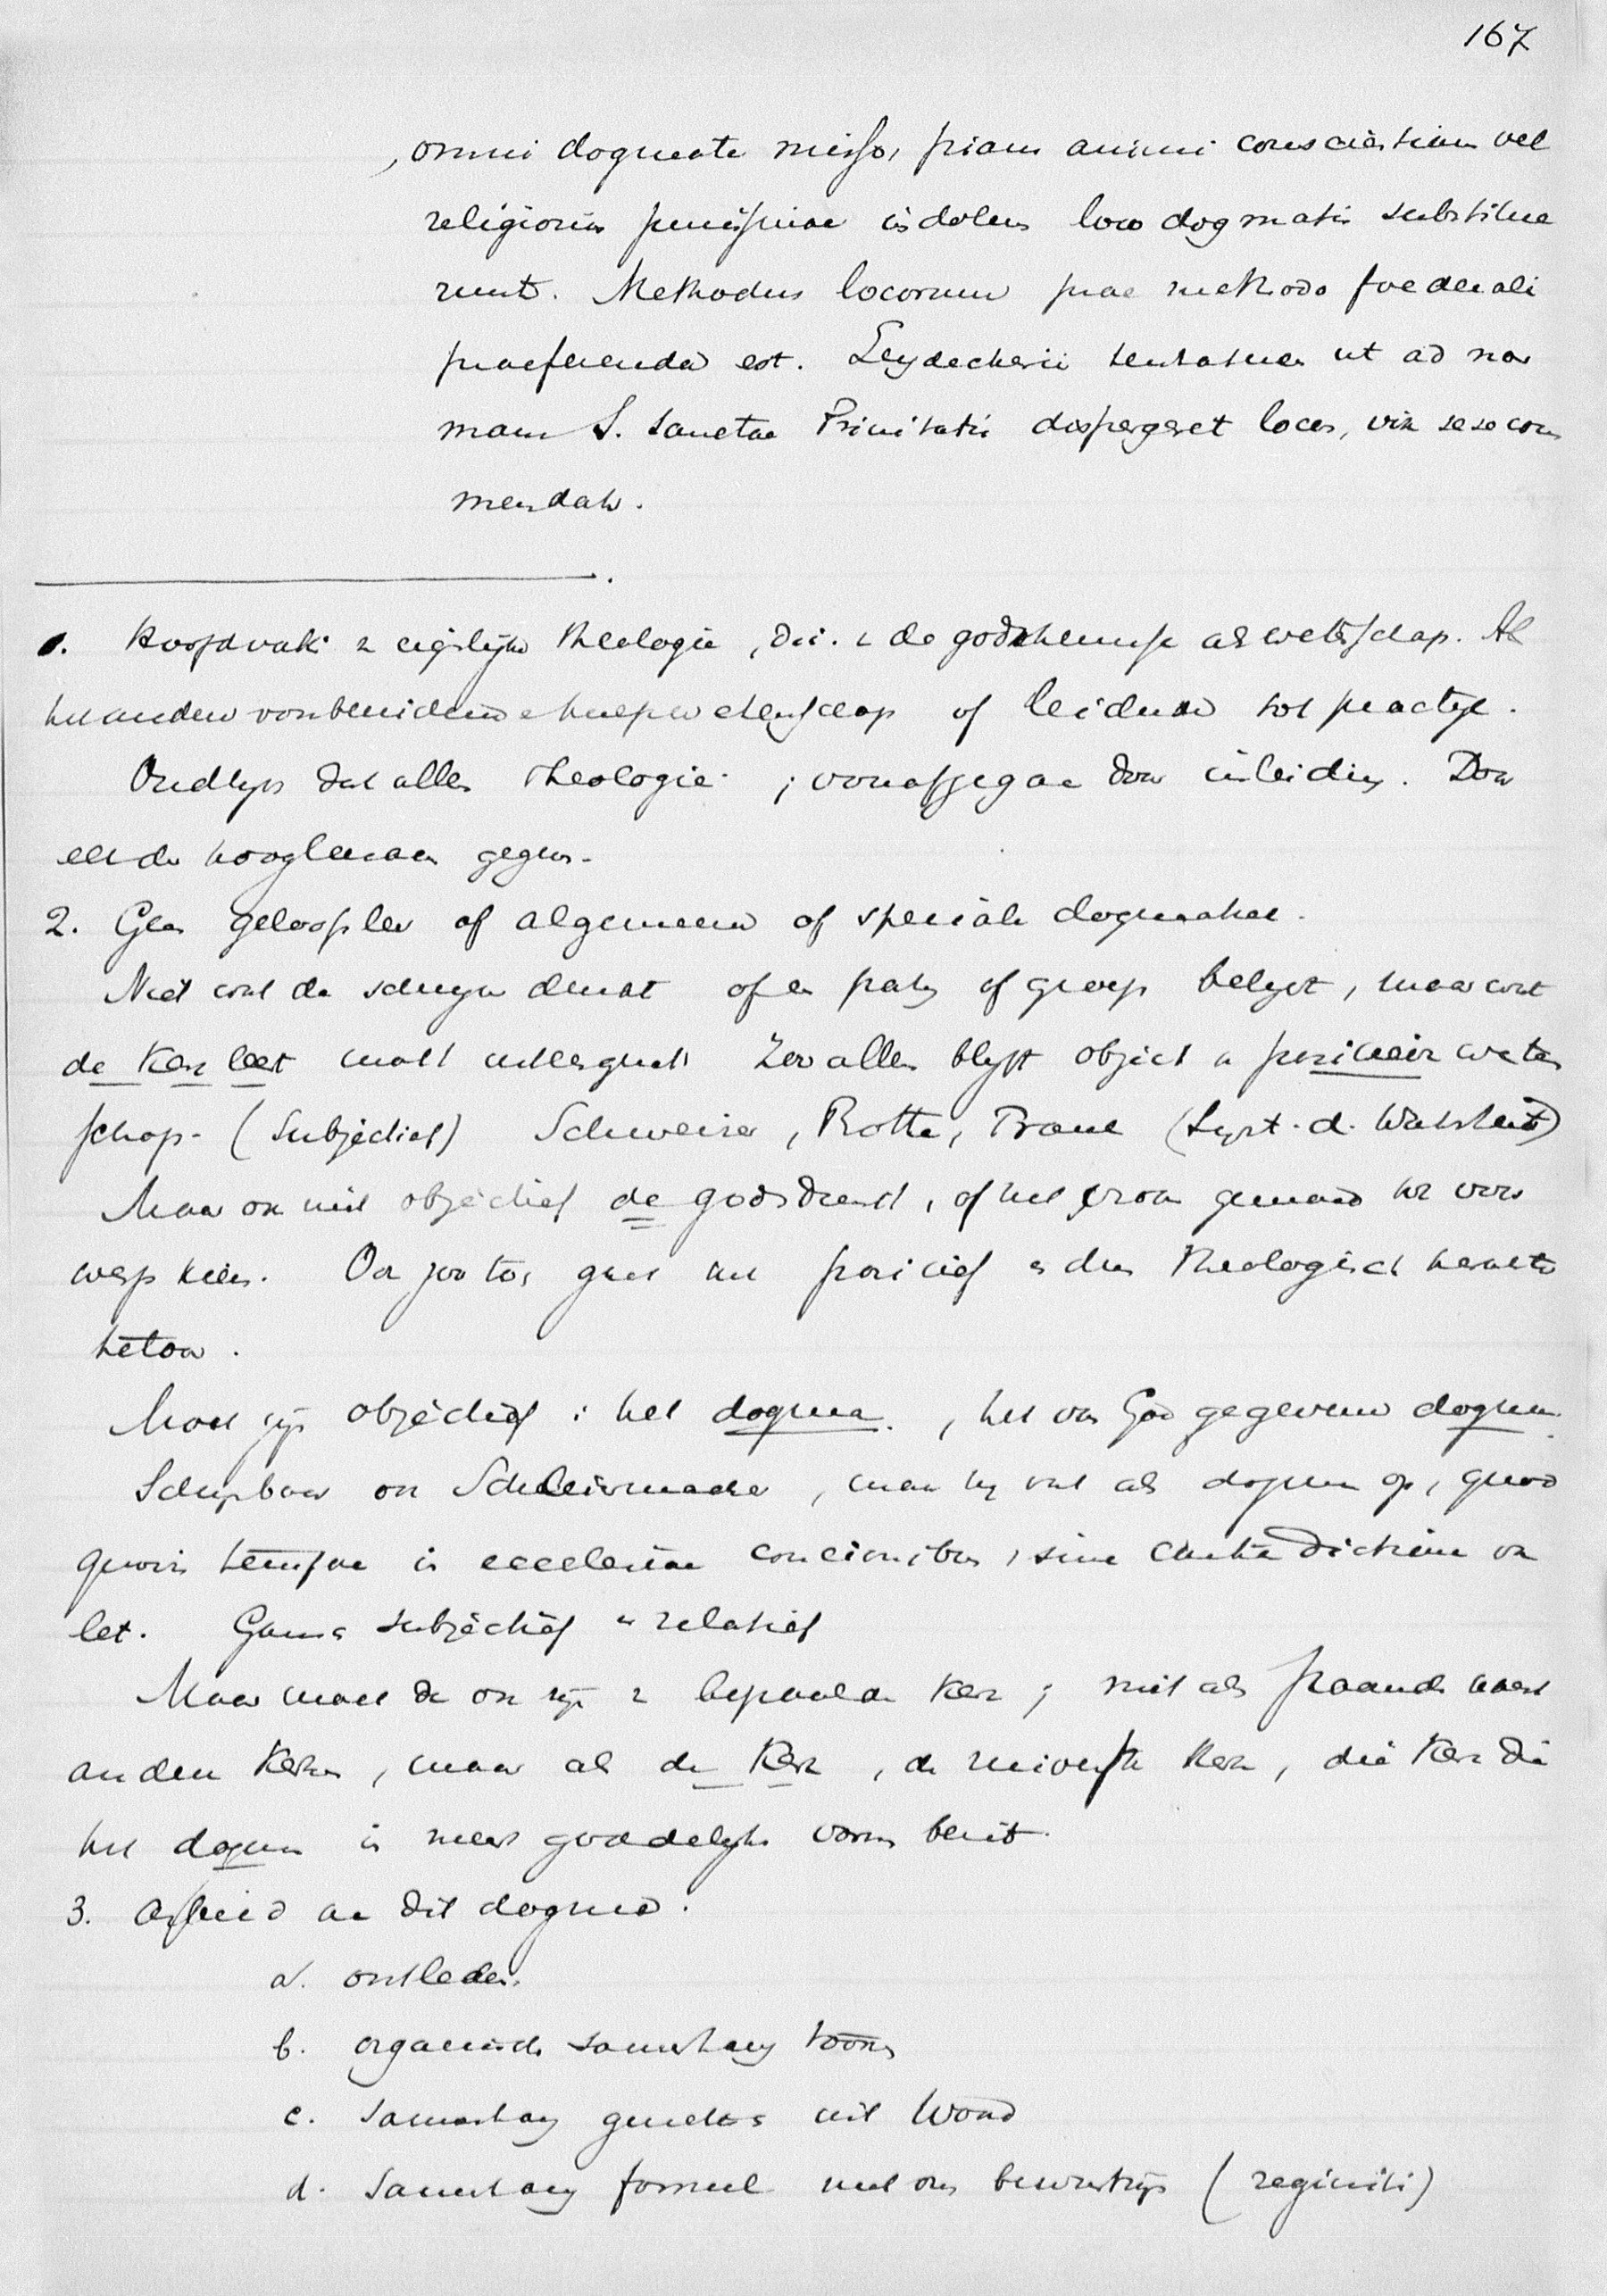 167
, omni dogmate misso, piam animi conscientiam vel
religionis genuinae indolem loco dogmatis substitue
runt. Methodus locorum prae methodo foederali
praeferenda est. Leydeckerii tentamen ut ad nor
mam S. Sanctae Trinitatis dispergeret locos, vix sese com
mendat.
1. Hoofdvak v eigenlijke theologie, d.i. v de godskennisse als wetenschap. Al
het andere voorbereidende hulpwetenschap of leidende tot practijk.
Oudtijds dat alles Theologie ; voorafgegaan door inleiding. Door
eerste hoogleeraar gegeven.
2. Geen geloofsleer of algemeene of speciale dogmatiek.
Niet wat de schrijver denkt of een partij of groep belijdt, maar wat
de Kerk leert moet uitlegging Zoo alleen blijft object v positieve weten
schap. (Subjectief) Schweizer, Rothe, (Syst. d. Wahrheit)
Maar ook niet objectief de godsdienst, of het vroom gemoed tot voor
werp kiezen. Ook zoo toch gaat het positief en dus Theologisch karakter
te loor.
Moet zijn objectief : het dogma, het van God gegeven dogma
Schijnbaar ook Schleiermacher, maar hij vat als dogma op, quod
quovis tempore in ecclesiae concionibus, sine contradictione va
let. Gansch subjectief en relatief
Maar moet dan ook zijn v bepaalde Kerk ; niet als staande naast
andere Kerken, maar als de Kerk, de zuiverste Kerk, die Kerk die
het dogma in meest goddelijke vorm bezit.
3. Arbeid aan dit dogma.
a. ontleden.
b. organisch samenhang toonen
c. samenhang genetisch uit Woord
d. Samenhang formeel met ons bewustzijn